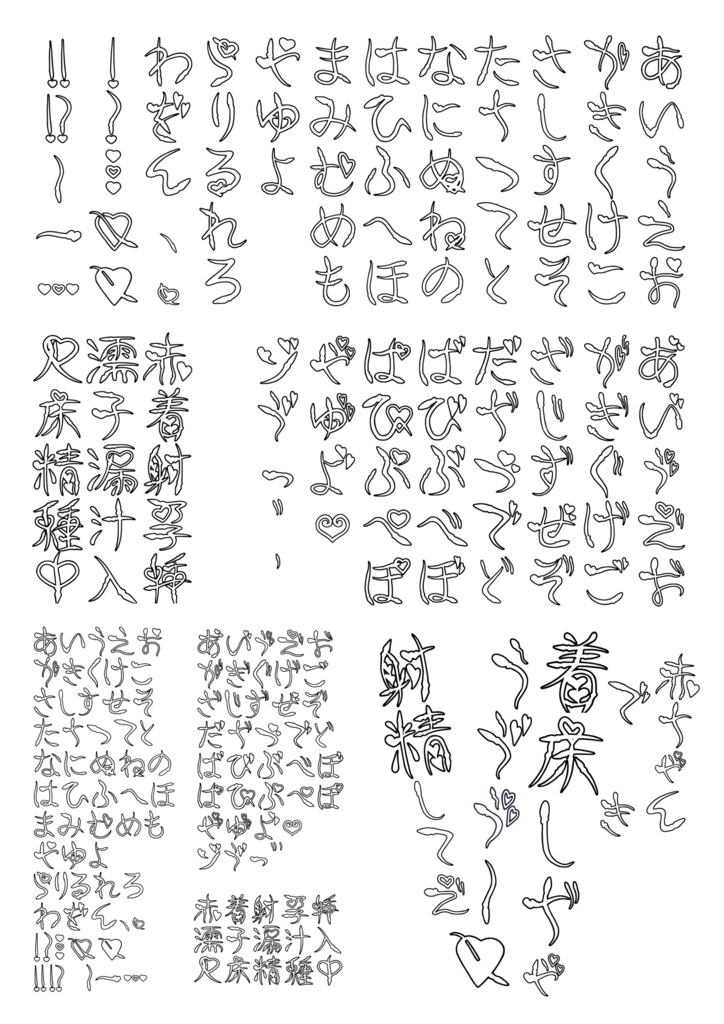 あいうえお
かきくけこ
さしすせそ
たちつてと
なにぬねの
はひふへほ
まみむめも
やゆよ
らりるれろ
わをん、。
!?
!!!?ー…
あ゛い゛ゔえ゛お゛
がぎぐげご
ざじずぜぞ
だぢづでど
ばびぶべぼ
ぱぴぷぺぽ
や゛ゆ゛よ゛♡
ッ゛っ゛
赤着射孕挿
濡子漏汁入
尺床精種中
あいうえお
かきくけこ
さしすせそ
たちつてと
なにぬねの
はひふへほ
まみむめも
やゆよ
らりるれろ
わをん、。
あ゛い゛ゔえ゛お゛
がぎぐげご
ざじずぜぞ
だぢづでど
ばびぶべぼ
ぱぴぷぺぽ
や゛ゆ゛よ゛♡
赤着射孕挿
濡子漏汁入
尺床精種中
赤ちゃん
でき
着床しぢゃ
うゔーー
射精してえ゛